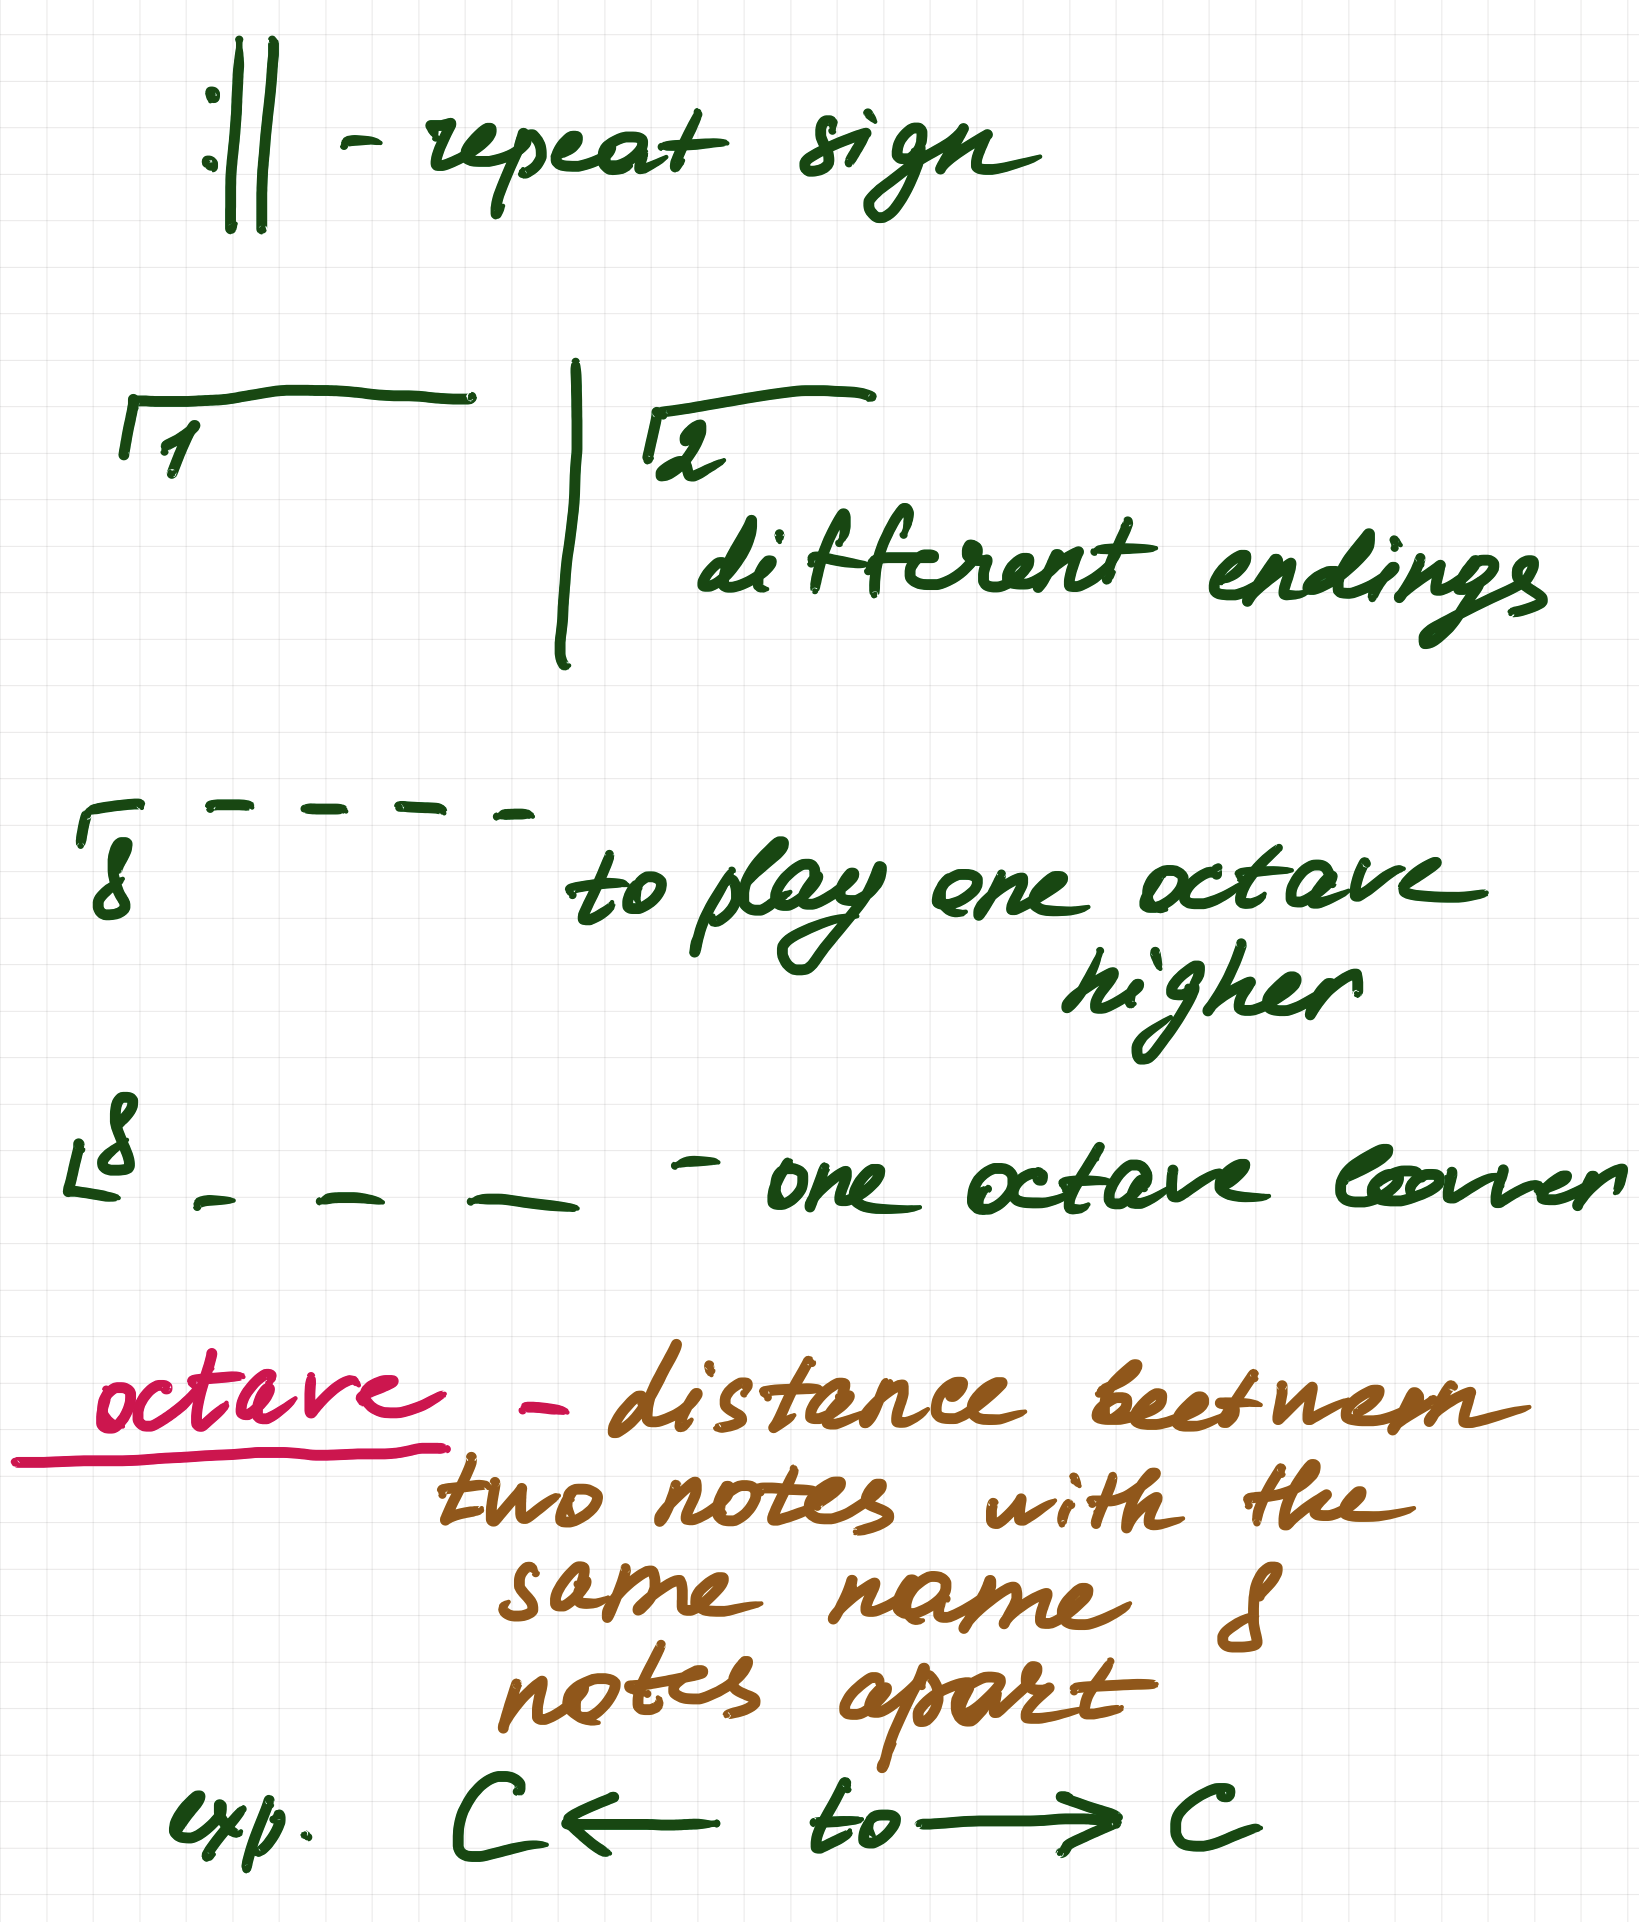 :|| - repeat sign
1 | 2
different endings
8 - - - - to play one octave
higher
8 - - - - one octave lower
octave - distance beetween
two notes with the
same name 8
notes apart
exp. C ← to → C